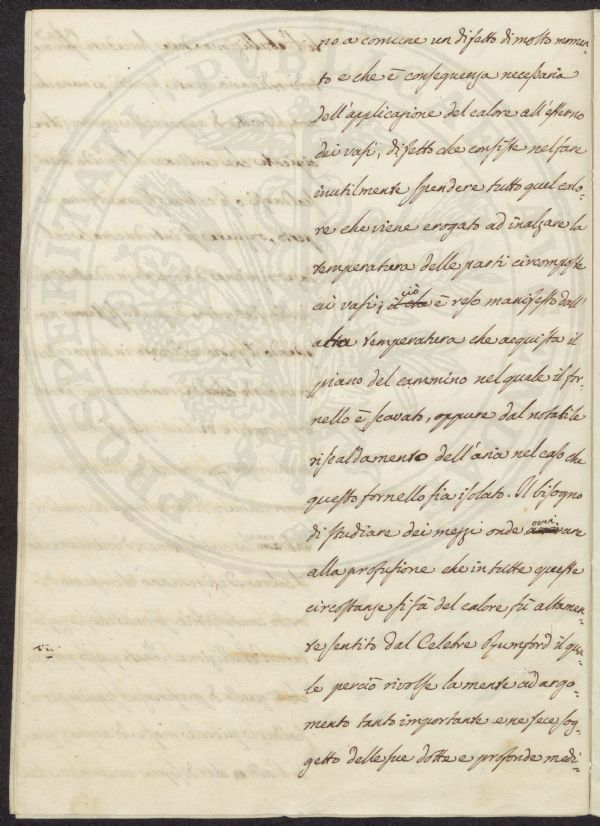 no a comune un difetto di molto momen-
to e che è conseguenza necessaria
dell'applicazione del calore all'esterno
dei vasi, difetto che consiste nel fare
inutilmente spendere tutto quel calo-
re che viene erogato ad inalzare la
temperatura delle parti circomposte
ai vasi; ciò è reso manifesto dall'
alta temperatura che acquista il
piano del cammino nel quale il for-
nello è scavato, oppure dal notabile
riscaldamento dell'aria nel caso che
questo fornello sia isolato. Il bisogno
di studiare dei mezzi onde ovviare
alla profusione che in tutte queste
circostanze si fà del calore, fù altamen-
te sentito dal Celebre Rumford il qua-
le perciò rivolse la mente ad argo-
mento tanto importante e ne fece sog-
getto delle sue dotte e profonde medi-
PROSPERITATI PUBLICAE